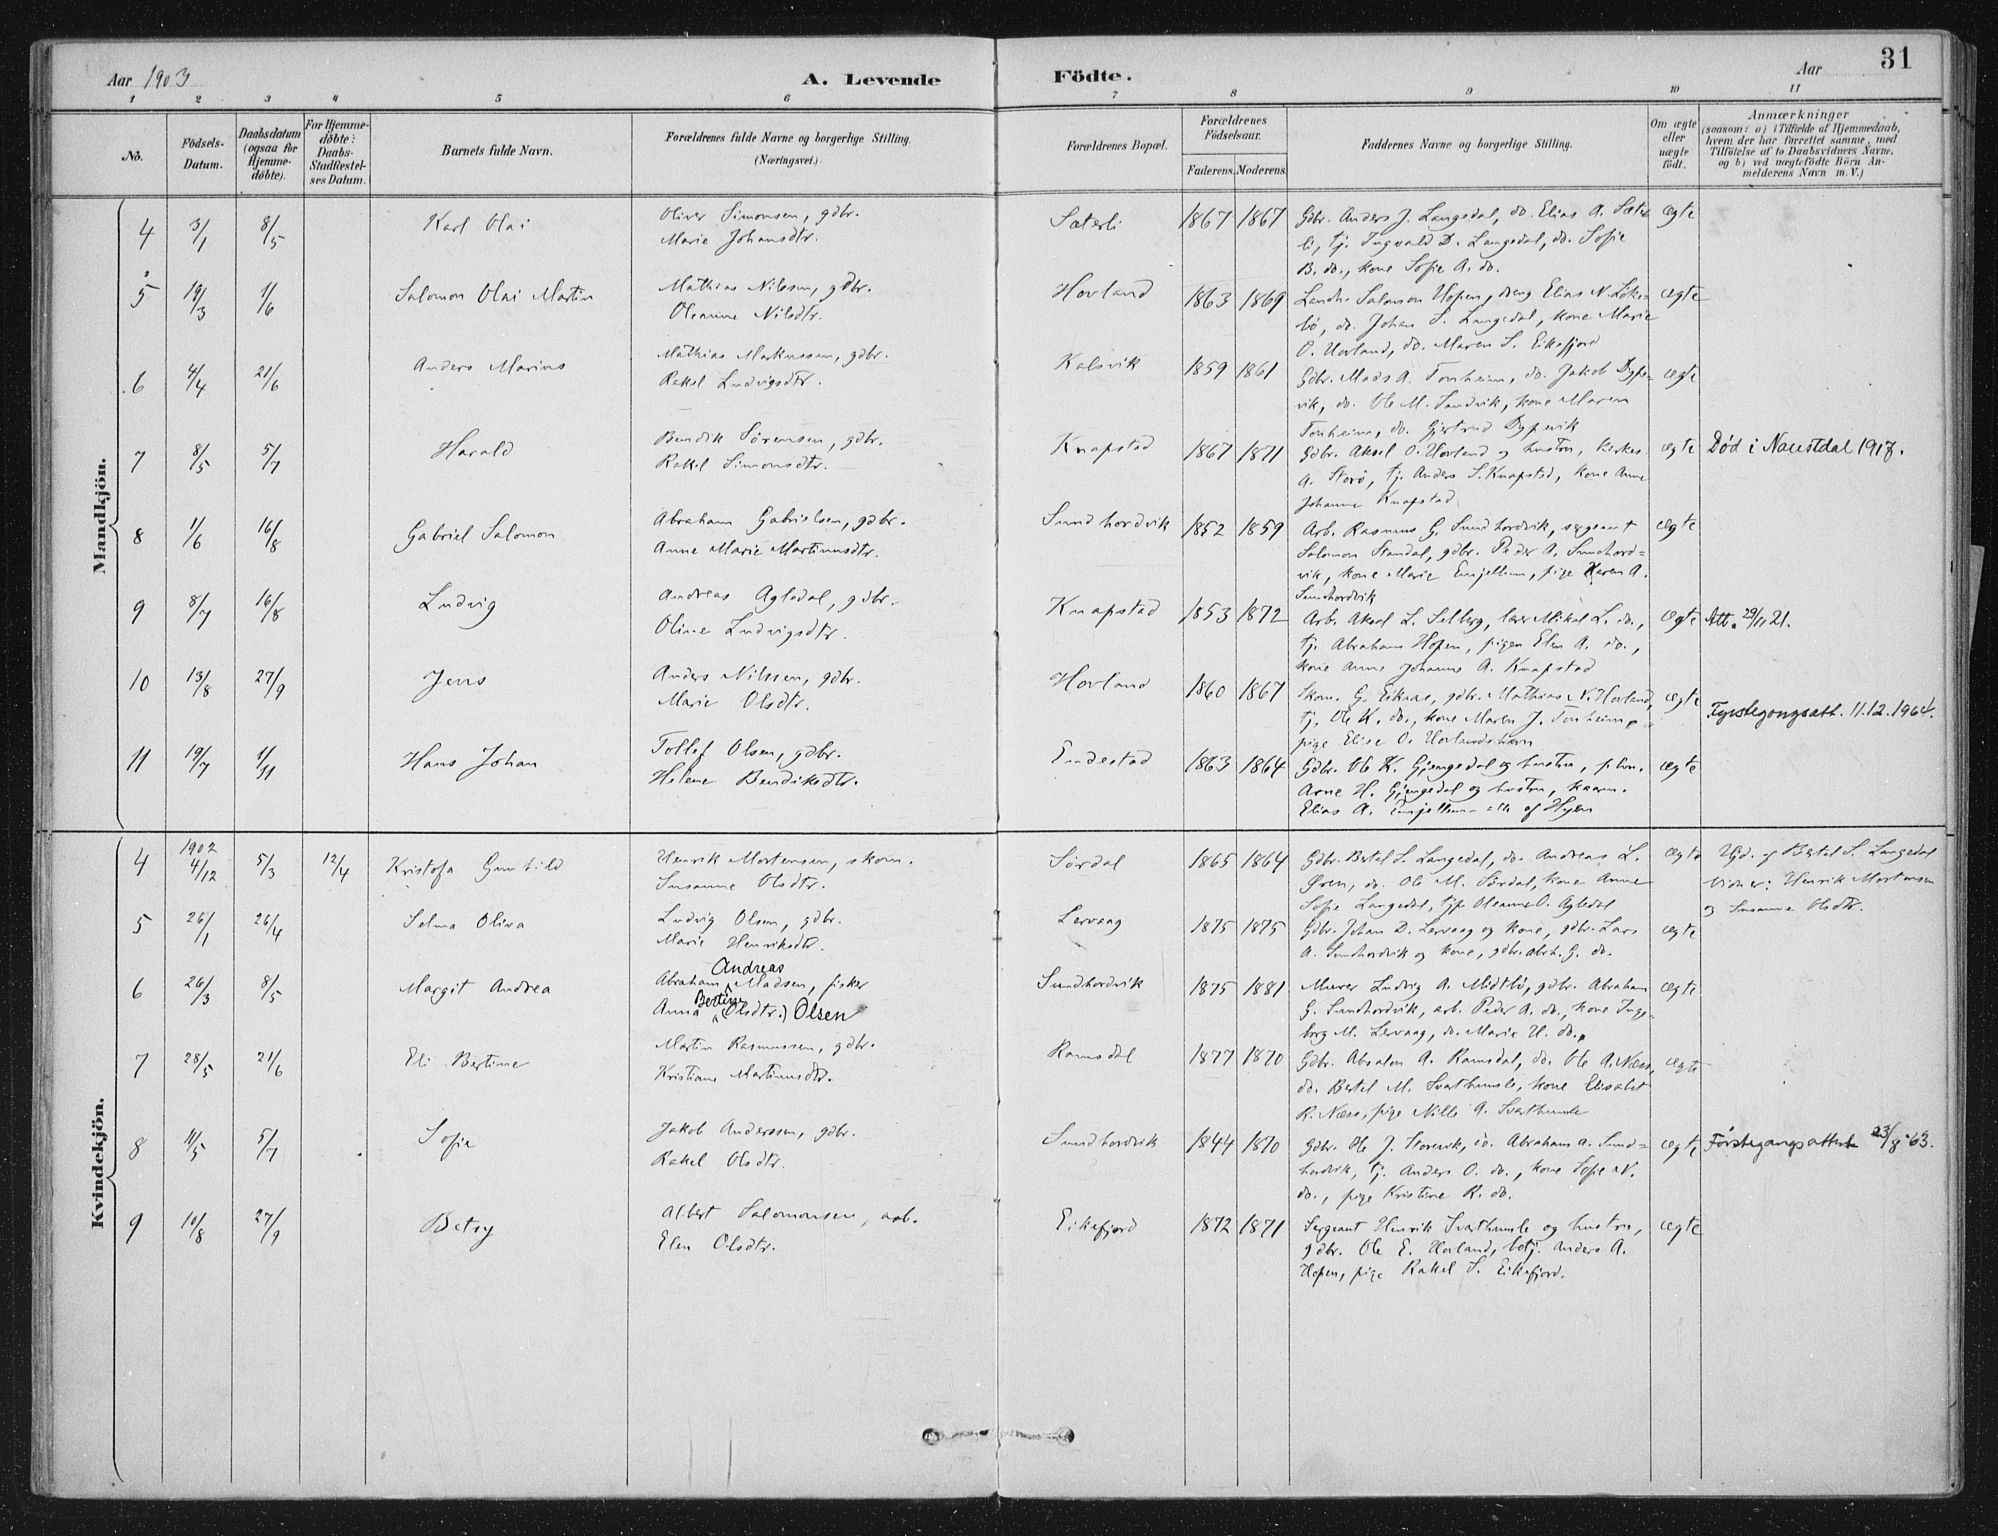 Aar 1903 A. Levende Födte. Aar 31
1 2 3 4 5 6 7 8 9 10 11
No. Födsels-Datum. Daabsdatum (ogsaa for Hjemmedöbte). For Hjemmedöbte: Daabs-Stadfæstelses Datum. Barnets fulde Navn. Forældrenes fulde Navne og borgerlige Stilling. (Næringsvei.) Forældrenes Bopæl. Forældrenes Födselsaar. Faderens. Moderens. Faddernes Navne og borgerlige Stilling. Om ægte eller uægte födt. Anmærkninger (saasom: a) i Tilfælde af Hjemmedaab, hvem der har forrettet samme, med Tilföielse af to Daabsvidners Navne, og b) ved uægtefödte Börn Anmelderens Navn m. V.)
Mandkjön.
4 3/1 8/5 Karl Olai Oliver Simonsen, gdbr. Sæterli 1867 1867 Gdbr. Anders J. Langedal, do. Elias A. Sæter- ægte
Marie Johansdtr. li, tj. Ingvald D. Langedal, do. Sofie
B. do., kone Sofie A. do.
5 19/3 1/6 Salomon Olai Martin Mathias Nilssen, gdbr. Hovland 1863 1869 Landh. Salomon Hopen, dreng Elias N. Løkke- ægte
Oleanne Nilsdtr. bø, do. Johan S. Langedal, kone Marie
O. Hovland, do. Maren S. Eikefjord
6 4/4 21/6 Anders Marius Mathias Markussen, gdbr. Kalsvik 1859 1861 Gdbr. Mads A. Tonheim, do. Jakob Dype- ægte
Rakel Ludvigsdtr. vik, do. Ole M. Sandvik, kone Maren
Tonheim, do. Gjertrud Dypevik
7 8/5 5/7 Harald Bendik Sørensen, gdbr. Knapstad 1867 1871 Gdbr. Aksel O. Hovland og hustru, ægte Død i Naustdal 1917.
Rakel Simonsdtr. A. Storø, tj. Anders S. Knapstad, kone Anne
Johanne Knapstad
8 1/6 16/8 Gabriel Salomon Abraham Gabrielsen, gdbr. Sundhordvik 1852 1859 Arb. Rasmus G. Sundhordvik, sergeant ægte
Anne Marie Martinusdtr. Salomon Standal, gdbr. Peder A. Sundhord-
vik, kone Marie Emjellum, pige Karen A.
Sundhordvik
9 8/7 16/8 Ludvig Andreas Agledal, gdbr. Knapstad 1853 1872 Arb. Aksel L. Solberg, lærer Mikal L. do., ægte Att. 29/11 21.
Oline Ludvigsdtr. tj. Abraham Hopen, pigen Elen A. do.,
kone Anne Johanne A. Knapstad
10 13/8 27/9 Jens Anders Nilssen, gdbr. Hovland 1860 1867 Skom. G. Eiknæs, gdbr. Mathias N. Hovland, ægte Fyrstegongsatt. 11.12.1964.
Marie Olsdtr. tj. Ole K. do., kone Maren J. Tonheim,
pige Elise O. Hovlandshavn
11 19/7 1/11 Hans Johan Tollef Olsen, gdbr. Endestad 1863 1864 Gdbr. Ole K. Gjengedal og hustru, ægte
Helene Bendiksdtr. Arne H. Gjengedal og hustru, kaarm.
Elias A. Emjellum – alle af Hyen
Kvindekjön.
4 1902 4/12 5/3 12/4 Kristofa Gunhild Henrik Mortensen, skom. Sørdal 1865 1864 Gdbr. Bertel S. Langedal, do. Andreas L. ægte Hjd. af Bertel S. Langedal
Susanne Olsdtr. Øren, do. Ole M. Sørdal, kone Anne Vidner: Henrik Mortensen
Sofie Langedal, tjp. Oleanne O. Agledal og Susanne Olsdtr.
5 26/1 26/4 Selma Oliva Ludvig Olsen, gdbr. Lervaag 1875 1875 Gdbr. Johan D. Lervaag og kone, gdbr. Lars ægte
Marie Henriksdtr. A. Sundhordvik og kone, gdbr. Abrh. G. do.
6 26/3 8/5 Margit Andrea Abraham Andreas Madsen, fisker Sundhordvik 1875 1881 Murer Ludvig A. Midtbø, gdbr. Abraham ægte
Anna Bertine (Olsdtr.) Olsen G. Sundhordvik, arb. Peder A. do., kone Inge-
borg M. Lervaag, do. Marie H. do.,
7 28/5 21/6 Eli Bertine Martin Rasmussen, gdbr. Ramsdal 1877 1870 Gdbr. Absalon A. Ramsdal, do. Ole A. Næss, ægte
Kristiane Martinusdtr. do. Bertel M. Svarthumle, kone Elisabet
R. Næss, pige Nille A. Svarthumle
8 11/5 5/7 Sofie Jakob Anderssen, gdbr. Sundhordvik 1844 1870 Gdbr. Ole J. Storevik, do. Abraham A. Sund- ægte Førstegangsattest 23/8-63.
Rakel Olsdtr. hordvik, tj. Anders O. do., kone Sofie N.
do., pige Kristine R. do.
9 10/8 27/9 Betsy Albert Salomonsen, arb. Eikefjord 1872 1871 Sergeant Henrik Svarthumle og hustru, ægte
Elen Olsdtr. gdbr. Ole E. Hovland, Anders A.
Hopen, pige Rakel S. Eikefjord.